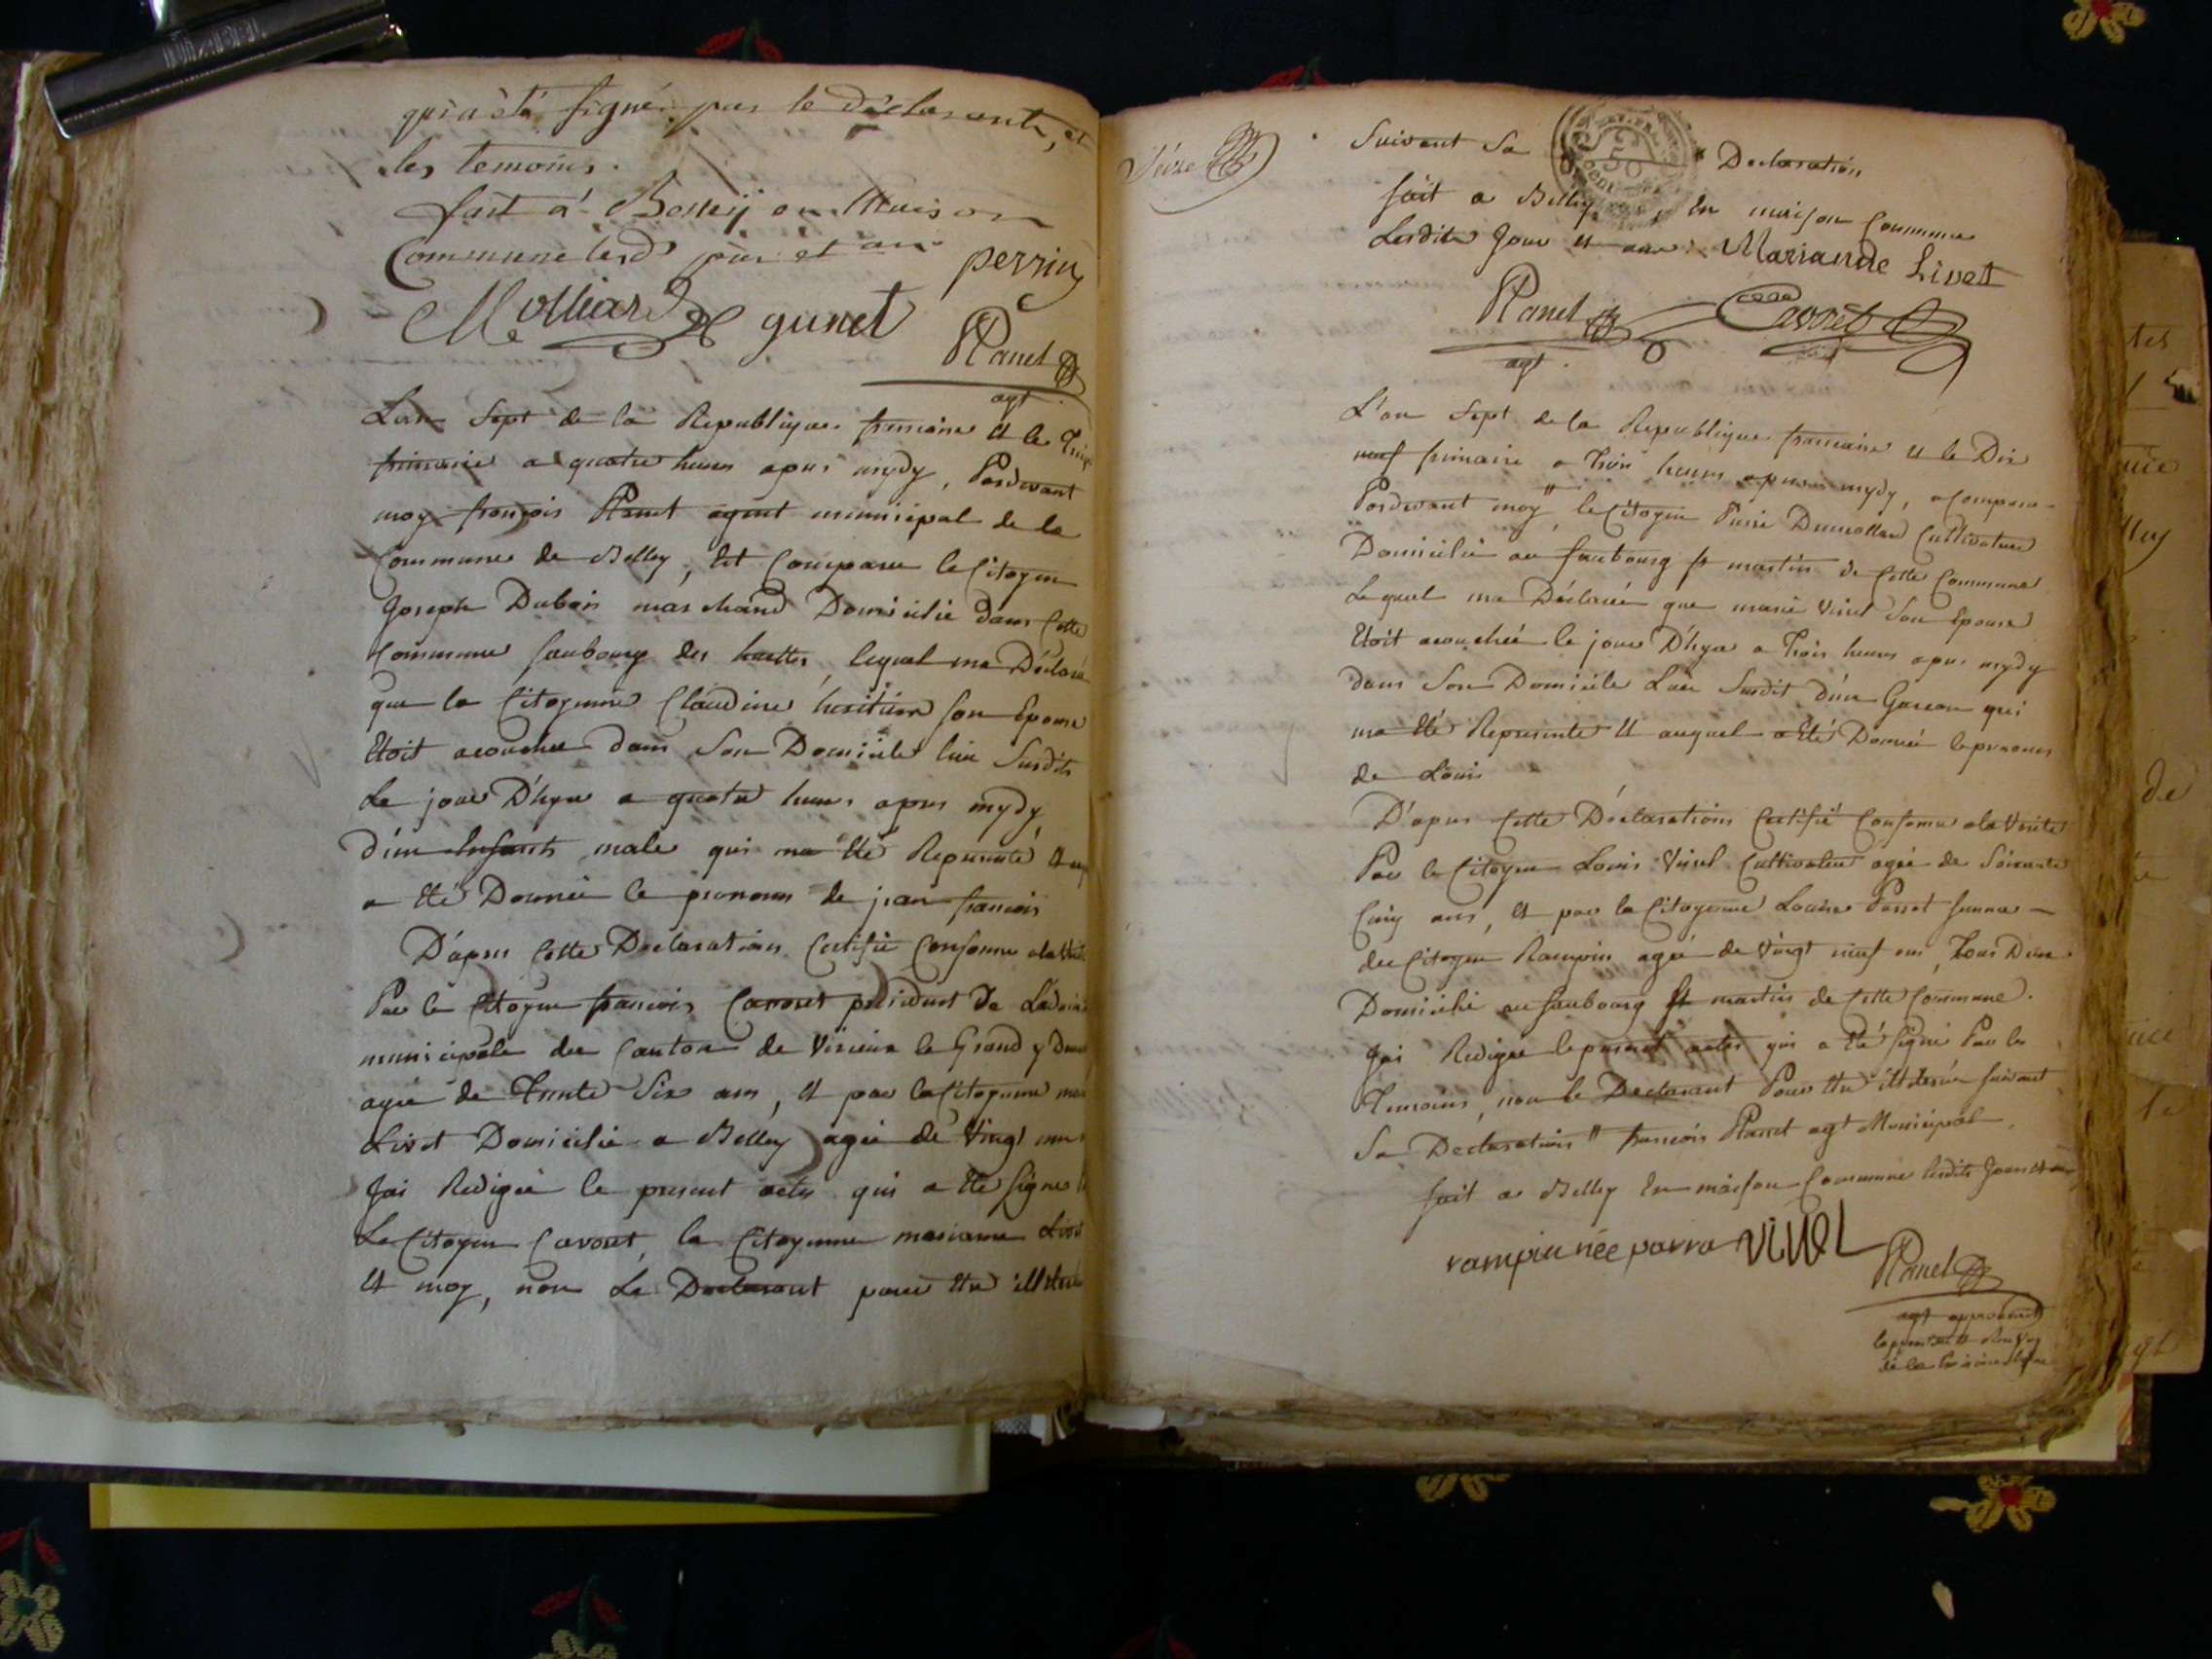 qui a été signé par le déclarant, et
les temoins.
fait a Belley en Maison
Commune lesd jour et an
perrin
Molliard gunet
Planet
agt
L'an Sept de la Republique francaise et le
frimaire a quatre heures apres mydy, Pardevant
moy françois Planet agent municipal de la
Commune de Belley, Est Comparu le Citoyen
Joseph Dubois marchand Domicilié dans Cette
Commune faubourg des, lequel ma Déclaré
que la Citoyenne Claudine son Epouse
Etoit acouchee dans Son Domicile Susdit
Le jour D'hyer a quatre heures apres mydy
d'un Enfant male qui ma été Representé
a été Donnée le pronom de jean francois
D'apres Cette Declaration Certifié Conforme
Par le Citoyen francois Cavoret président De
municipale du Canton de Virieux le Grand y
agée de Trente Six ans, et par la Citoyenne
Livet Domicilié a Belley agée de Vingt
Jai Redigée le present acte qui a été signé
Le Citoyen Cavoret, la Citoyenne mariane
Et moy, non Le Declarant pour être
Seize
Suivant Sa Declaration
50
fait a Belley, En maison Commune
Lesdits Jour et an Marianne Livett
Planet Cavoret
agt
L'an Sept de la Republique francaise et le Dix
neuf frimaire a Trois heures apres mydy, a Comparu
Pardevant moy" le Citoyen Dumollard Cultivateur
Domicilié au faubourg St martin de Cette Commune
Lequel ma Déclarée que marie Vivel Son Epouse
Etoit acouchée le jour D'hyer a Trois heures apres mydy
dans Son Domicile Susdit d'un Garcon qui
ma été Representé Et auquel a été Donnée le pronom
de Louis
D'apres Cette Déclaration Certifié Conforme a la Verité
Par le Citoyen Louis Vivel Cultivateur agée de Soixante
Cinq ans, et par la Citoyenne Louise femme
du Citoyen Rampin agée de Vingt neuf ans, Tous Deux
Domicilié au faubourg St martin de Cette Commune.
Jai Redigée le present acte qui a été signé Par les
Temoins, non le Declarant Pour être suivant
Sa Declaration" francois Planet agt Municipal.
fait a Belley En maison Commune lesdits Jour et an
rampin née parra ViVEL
Planet
agt approuvant